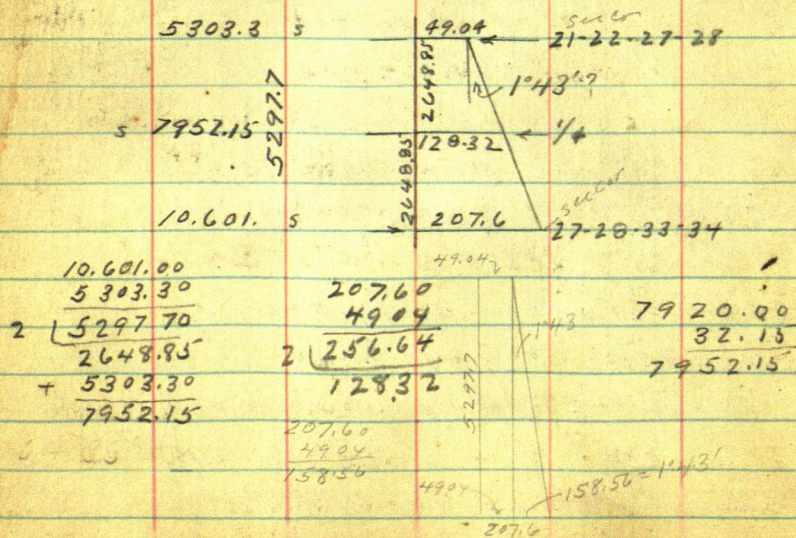 5303.3 s 49.04 sec cor 21-22-27-28
2648.85 1°43'?
5297.7
s 7952.15 128.32 1/4
2648.85
sec cor
10.601. s 207.6 27-28-33-34
49.04
10.601.00
5303.30
2 5297 70
2648.85
+ 5303.30
7952.15
207.60
4904
2 256.64
128.32
207.60
4904
158.56
1°43'
5297.7
4904
158.56 = 1°43'
207.6
7920.00
32.15
7952.15